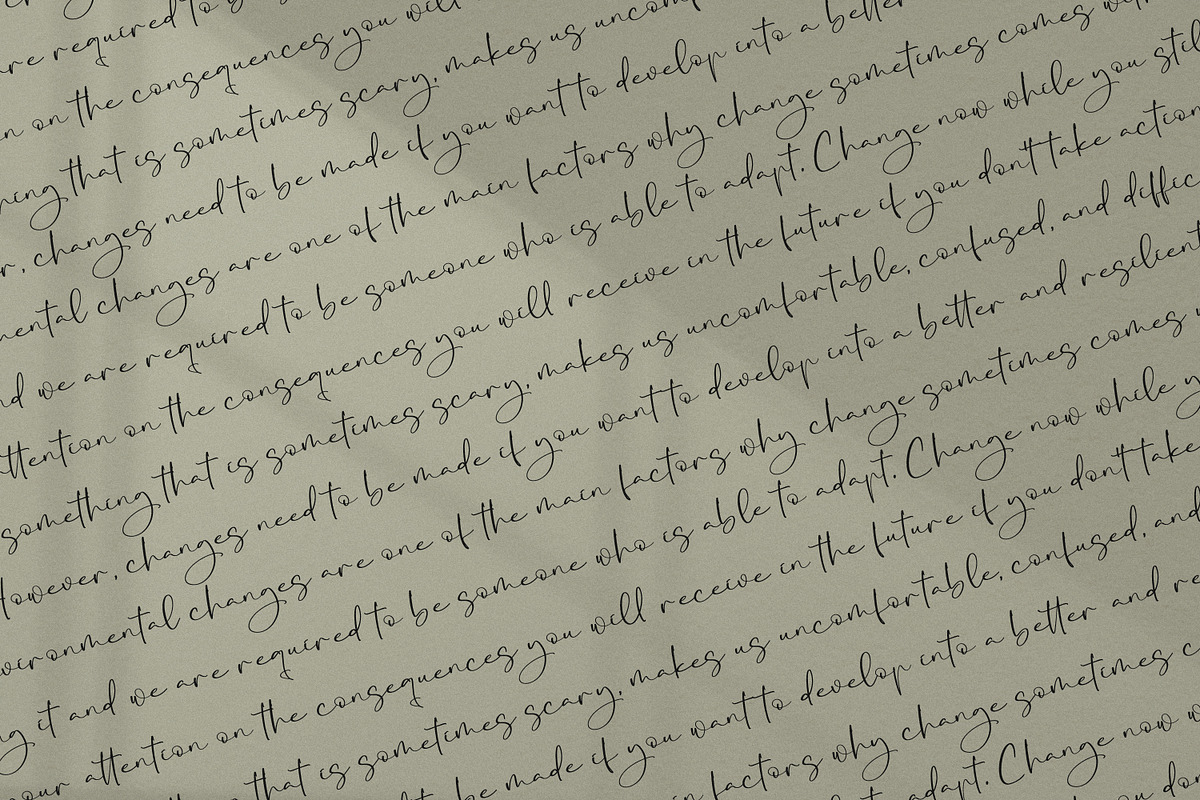 are required to
on the consequences you will
that is sometimes scary, makes us
changes need to be made if you want to develop into a better
changes are one of the main factors why change sometimes comes
we are required to be someone who is able to adapt. Change now while you
on the consequences you will receive in the future if you don't take action
something that is sometimes scary, makes us uncomfortable, confused, and
However, changes need to be made if you want to develop into a better and resilient
changes are one of the main factors why change sometimes comes
it and we are required to be someone who is able to adapt. Change now while
attention on the consequences you will receive in the future if you don't take
that is sometimes scary, makes us uncomfortable, confused, and
be made if you want to develop into a better and
factors why change sometimes
adapt. Change now